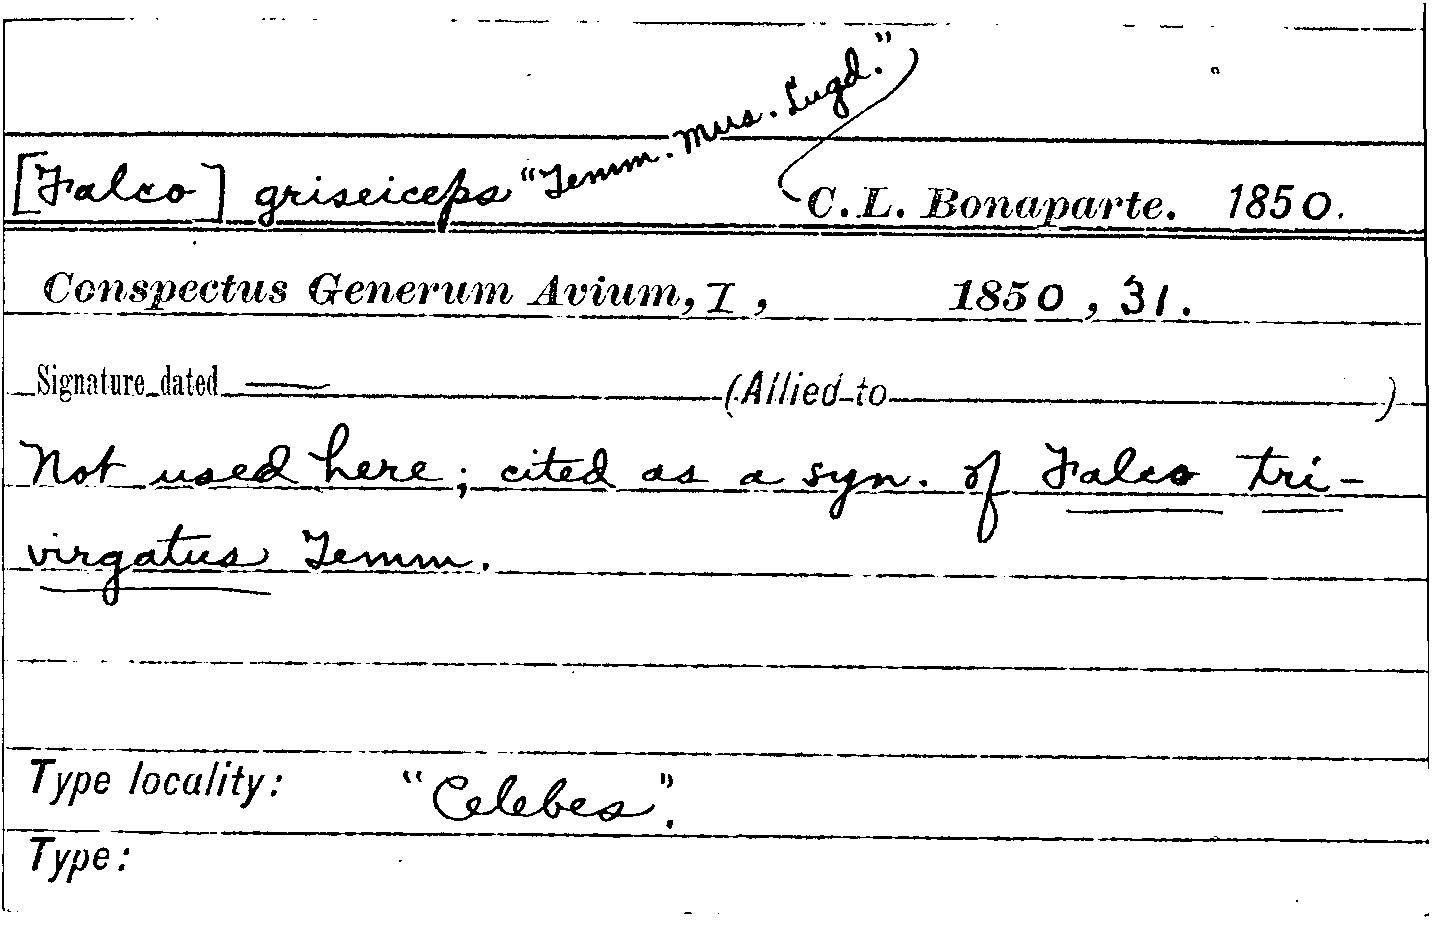 [Falco] griseiceps "Temm. Mus. Lugd." C. L. Bonaparte. 1850.
Conspectus Generum Avium, I, 1850, 31.
Signature dated — (Allied to )
Not used here; cited as a syn. of Falco tri-
virgatus Temm.
Type locality: "Celebes".
Type: